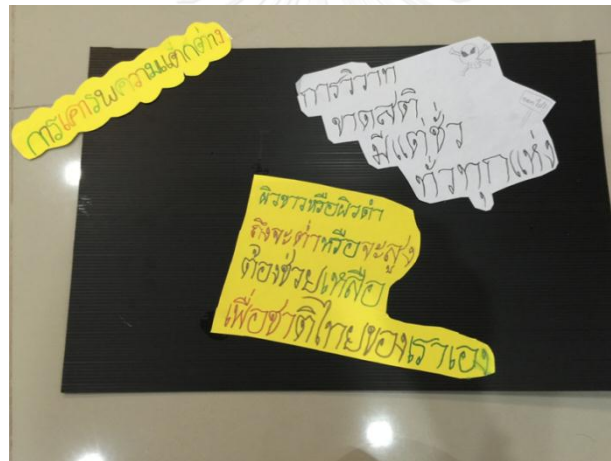 การเคารพความแตกต่าง
การวิวาท
ขาดสติ
มีแต่ชั่ว
ทั่วทุกแห่ง
ผิวขาวหรือผิวดำ
ถึงจะต่ำหรือจะสูง
ต้องช่วยเหลือ
เพื่อชาติไทยของเราเอง